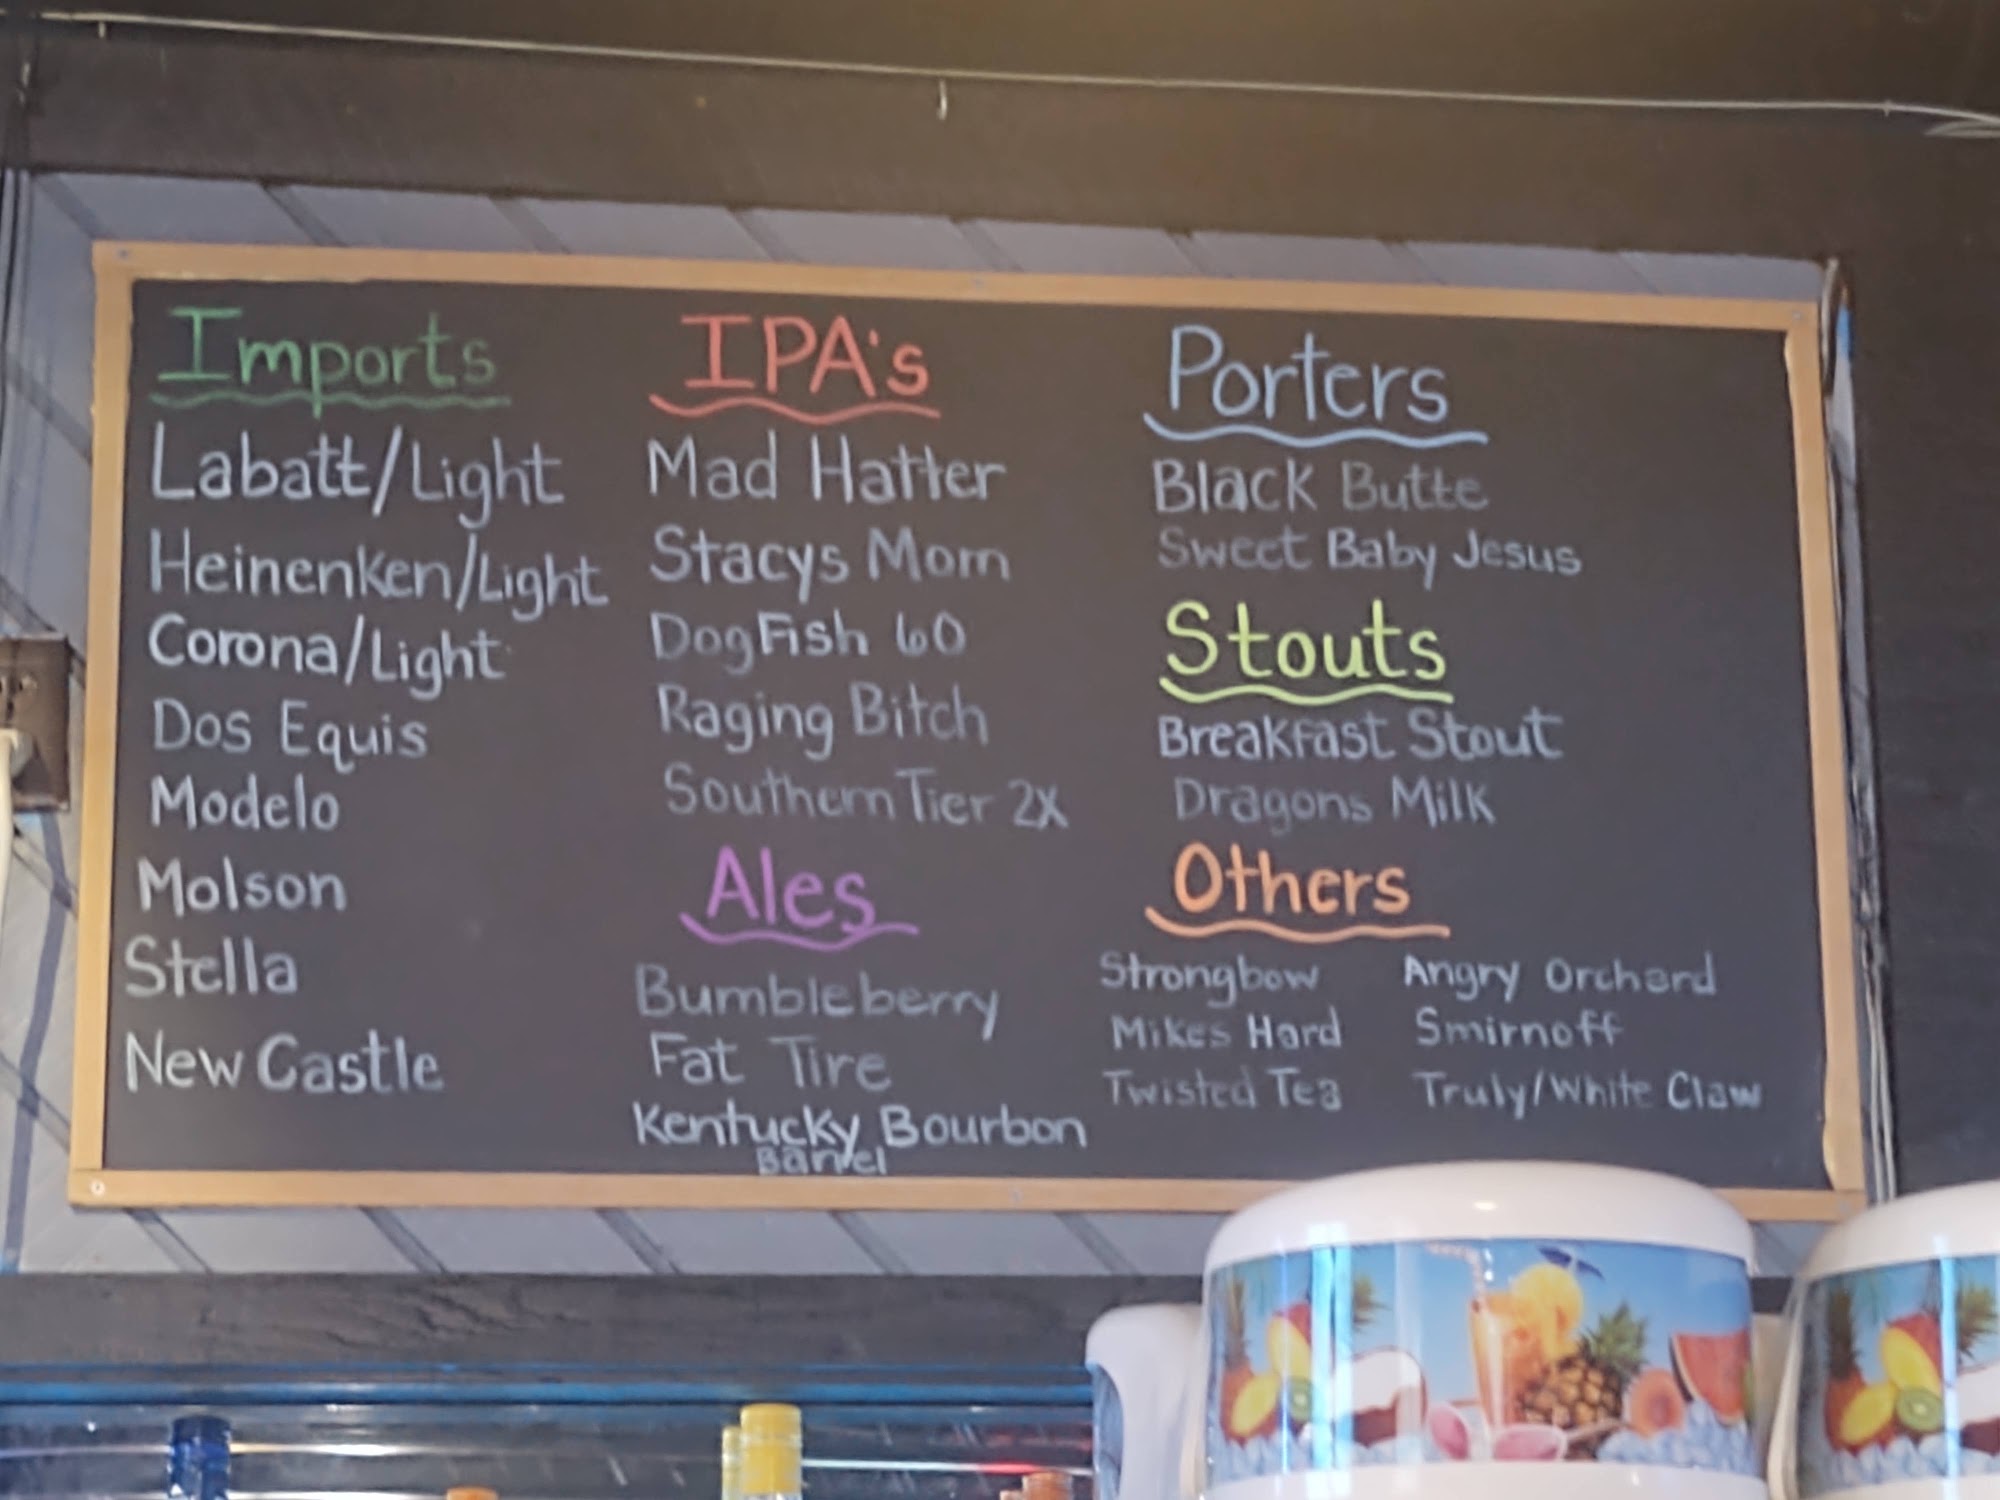 Imports
Labatt/Light
Heinenken/Light
Corona/Light
Dos Equis
Modelo
Molson
Stella
New Castle
IPA's
Mad Hatter
Stacys Mom
DogFish 60
Raging Bitch
Southern Tier 2X
Ales
Bumbleberry
Fat Tire
Kentucky Bourbon
Barrel
Porters
Black Butte
Sweet Baby Jesus
Stouts
Breakfast Stout
Dragons Milk
Others
Strongbow
Mikes Hard
Twisted Tea
Angry Orchard
Smirnoff
Truly/White Claw